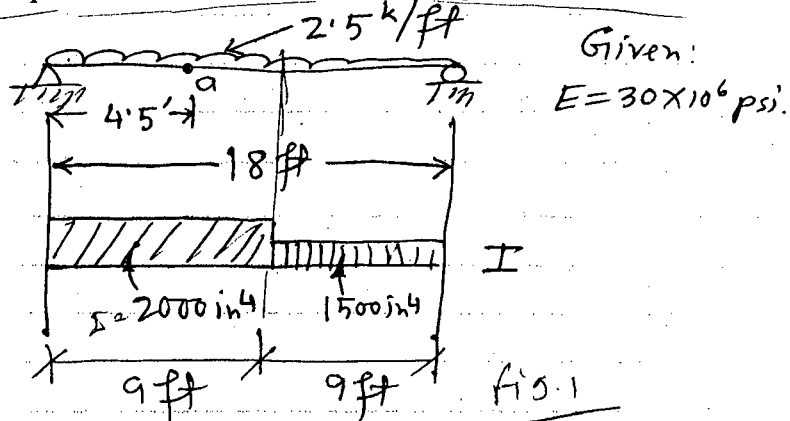 2.5 k/ft
Given:
E = 30×10⁶ psi.
a
4.5'
18 ft
I
I = 2000 in⁴
1500 in⁴
9 ft
9 ft
fig.1